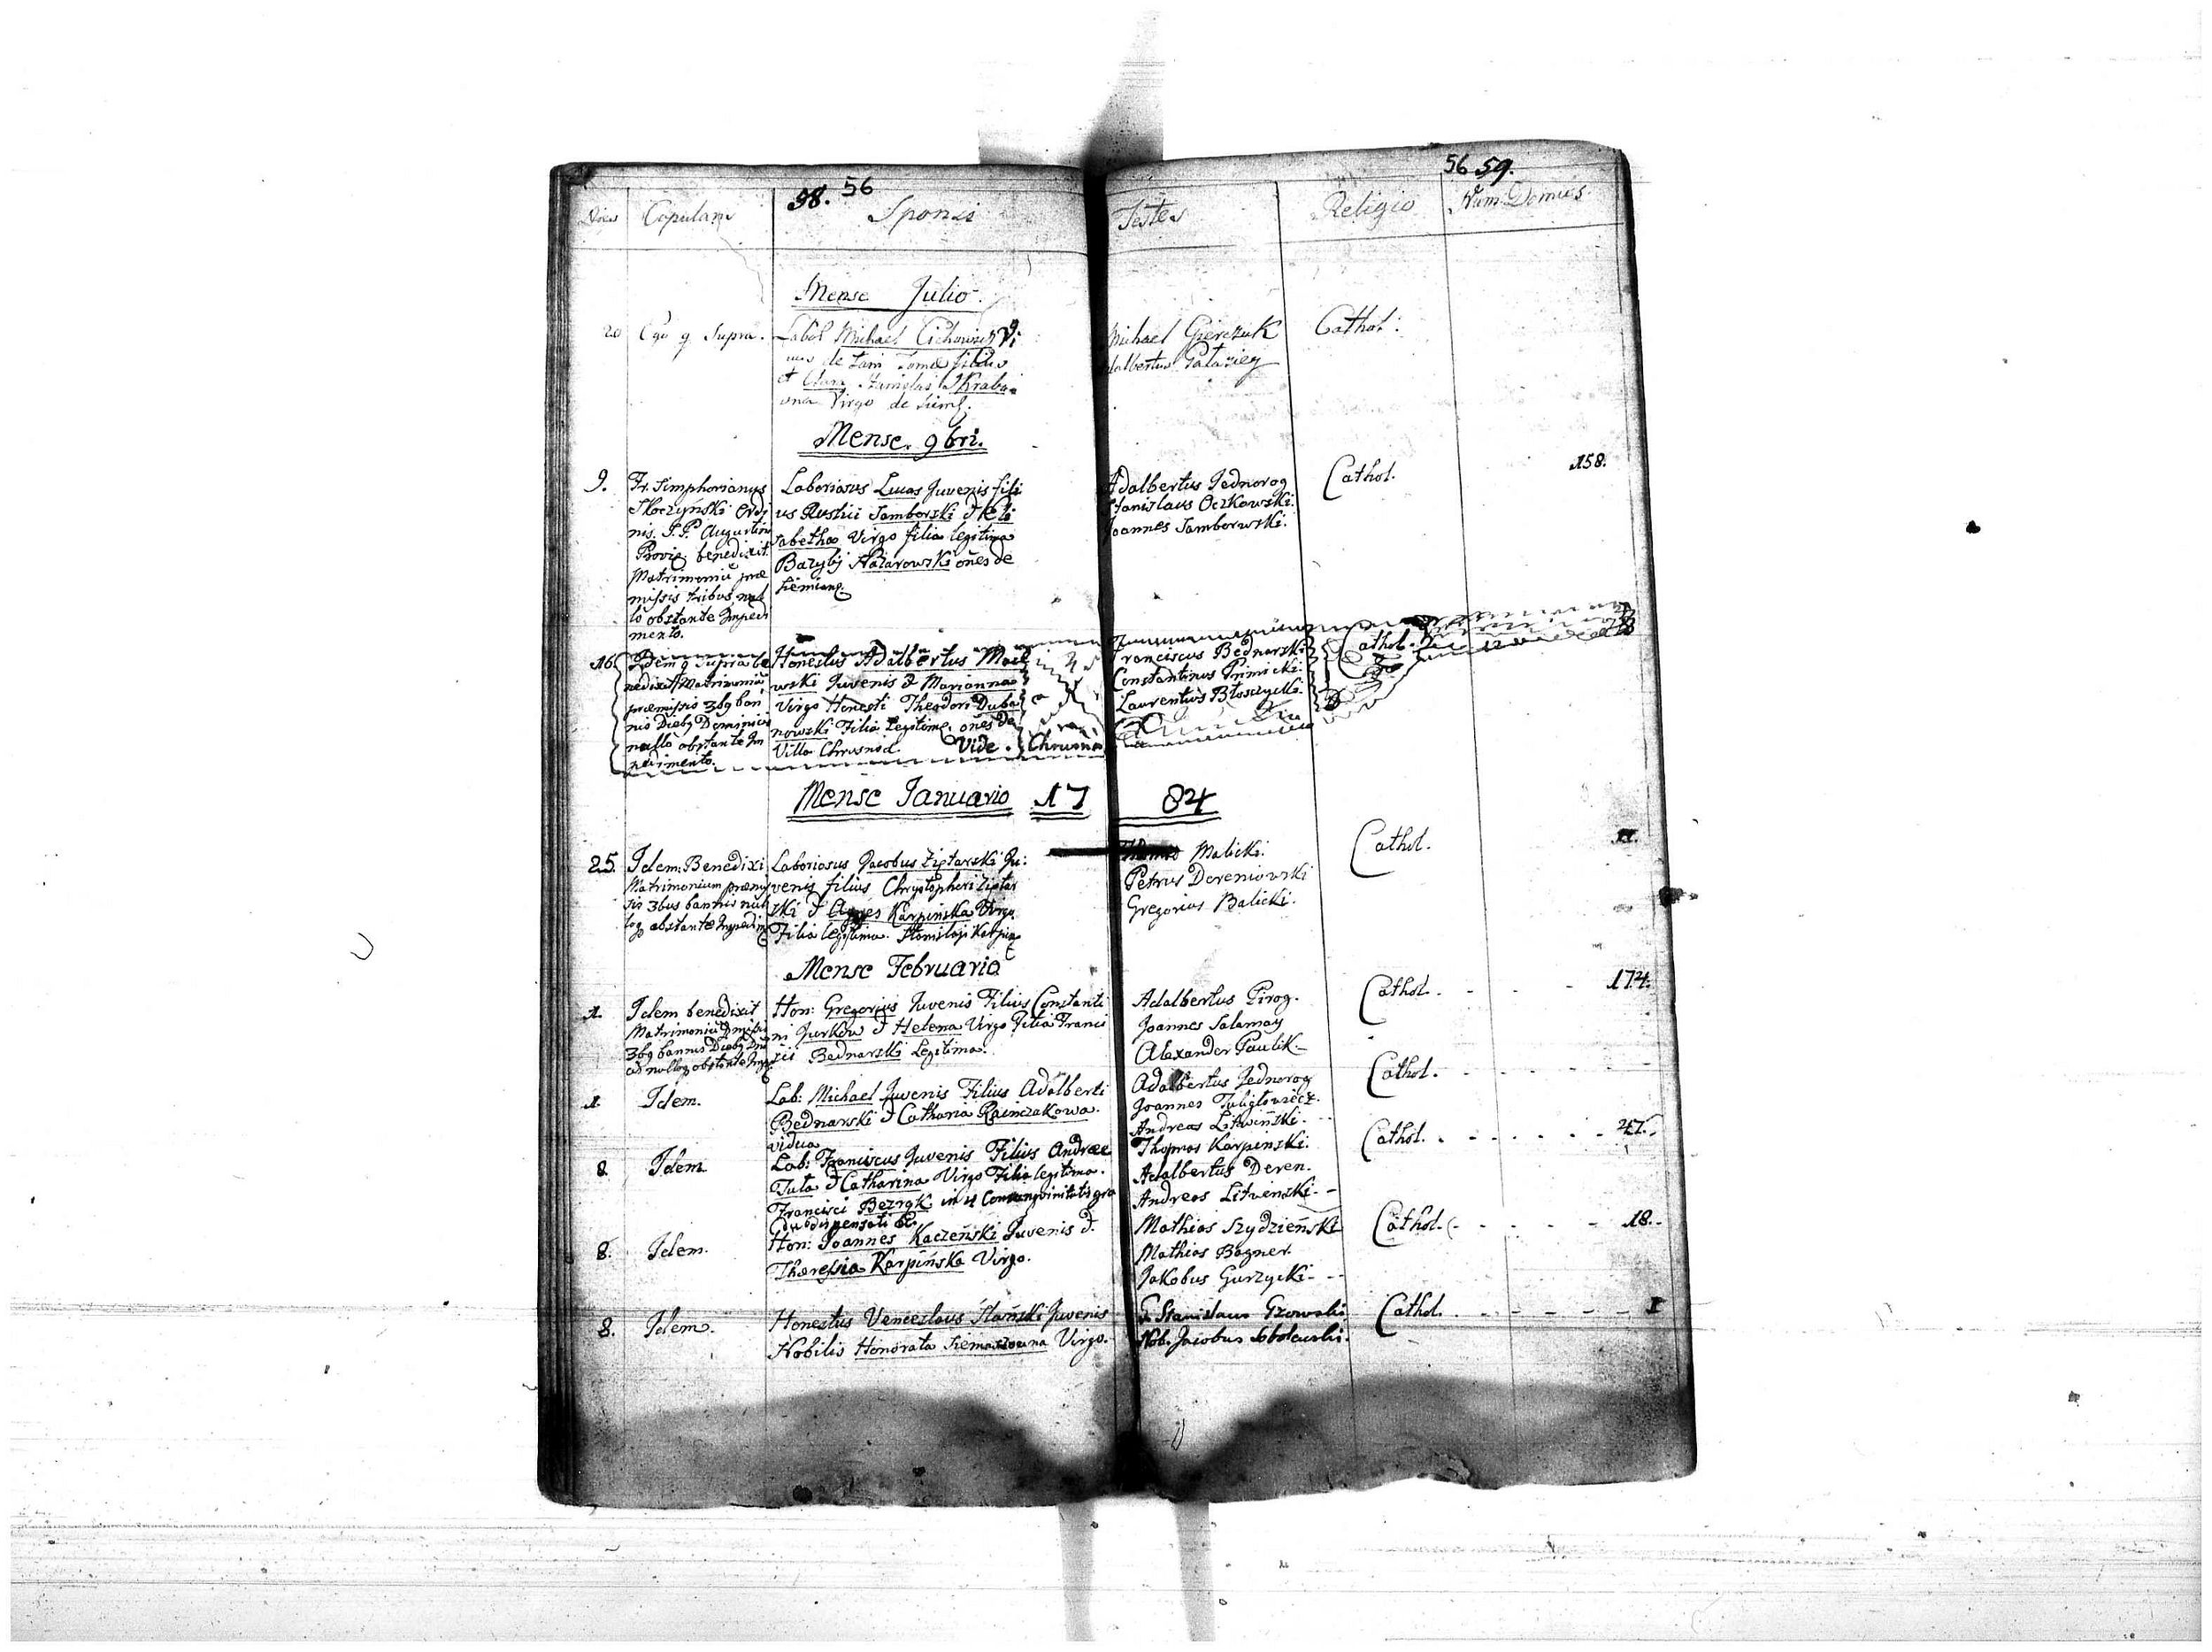 38. 56
56 59.
Dies Copulans Sponsi Testes Religio Num. Domus
Mense Julio.
20 Ego q Supra.
Labor Michael
de Fam Tomæ filius
et Clara Stanislai Skraba
ona Virgo de
Michael Gierczuk
Adalbertus
Cathol:
Mense. 9bri.
9. Fr. Simphorianus
Skoczyński Ordi
nis. P.P. Augustin
Provi benedixit
Matrimoniū præ
missis tribus nul
lo obstante Impedi
mento.
Laboriosus Lucas Juvenis fili
us Rustici Samborski & Eli
sabetha Virgo filia legitima
Bazylij Nazarowski oñes de
Siemianę.
Adalbertus Jednorog
Stanislaus Oczkowski.
Joannes Samborwski.
Cathol.
158.
16. Idem q Supra be
nedixit Matrimoniū
præmissis 3bq ban
nis Diebq Dominicis
nullo obstante Im
pedimento.
Honestus Adalbertus
wski Juvenis & Marianna
Virgo Honesti Theodori Duba
nowski Filia Legitima. oñes de
Villa Chrosno. Vide.
Franciscus Bednarski
Constantinus Primicki.
Laurentius Błoszycki.
Cathol.
Mense Januario 17 84
25. Idem. Benedixi
Matrimonium præmis
sis 3bus bannis nul
loq obstante Impedim
Laboriosus Jacobus Ziętarski Ju:
venis filius Chrystopheri Ziętar
ski & Agnes Karpinska Virgo
Filia legitima. Stanislaji Karpin
Malicki.
Petrus Dereniowski
Gregorius Balicki.
Cathol.
11.
Mense Februario
1. Idem benedixit
Matrimoniū
3bq bannis Diebq
nulloq obstante
Hon: Gregorius Juvenis Filius Constanti
ni Jurkow & Helena Virgo Filia Franci
sci Bednarski Legitima.
Adalbertus Pirog.
Joannes Salamay
Alexander Paulik.
Cathol.
174.
1. Idem.
Lab: Michael Juvenis Filius Adalberti
Bednarski & Catharia Rainczakowa.
vidua
Adalbertus Jednorog
Joannes Tuligłowicz.
Andreas Litwiński.
Cathol.
8. Idem
Lab: Franciscus Juvenis Filius Andreæ
Tuta & Catharina Virgo Filia legitima.
Francisci Bezrąk in 4 Consangvinitatis gra
du dispensati &.
Thomas Karpinski.
Adalbertus Deren.
Andreas Litvinski.
Cathol.
47.
8. Idem.
Hon: Joannes Kaczeński Juvenis &.
Theressia Karpińska Virgo.
Mathias Szydzieński
Mathias Bagner.
Jakobus Gurzycki.
Cathol.
18.
8. Idem.
Honestus Venceslaus Słański Juvenis
Nobilis Honorata Siemaszowna Virgo.
G. Stanislaus Gzowski
Nob. Jacobus Sobolewski.
Cathol.
I